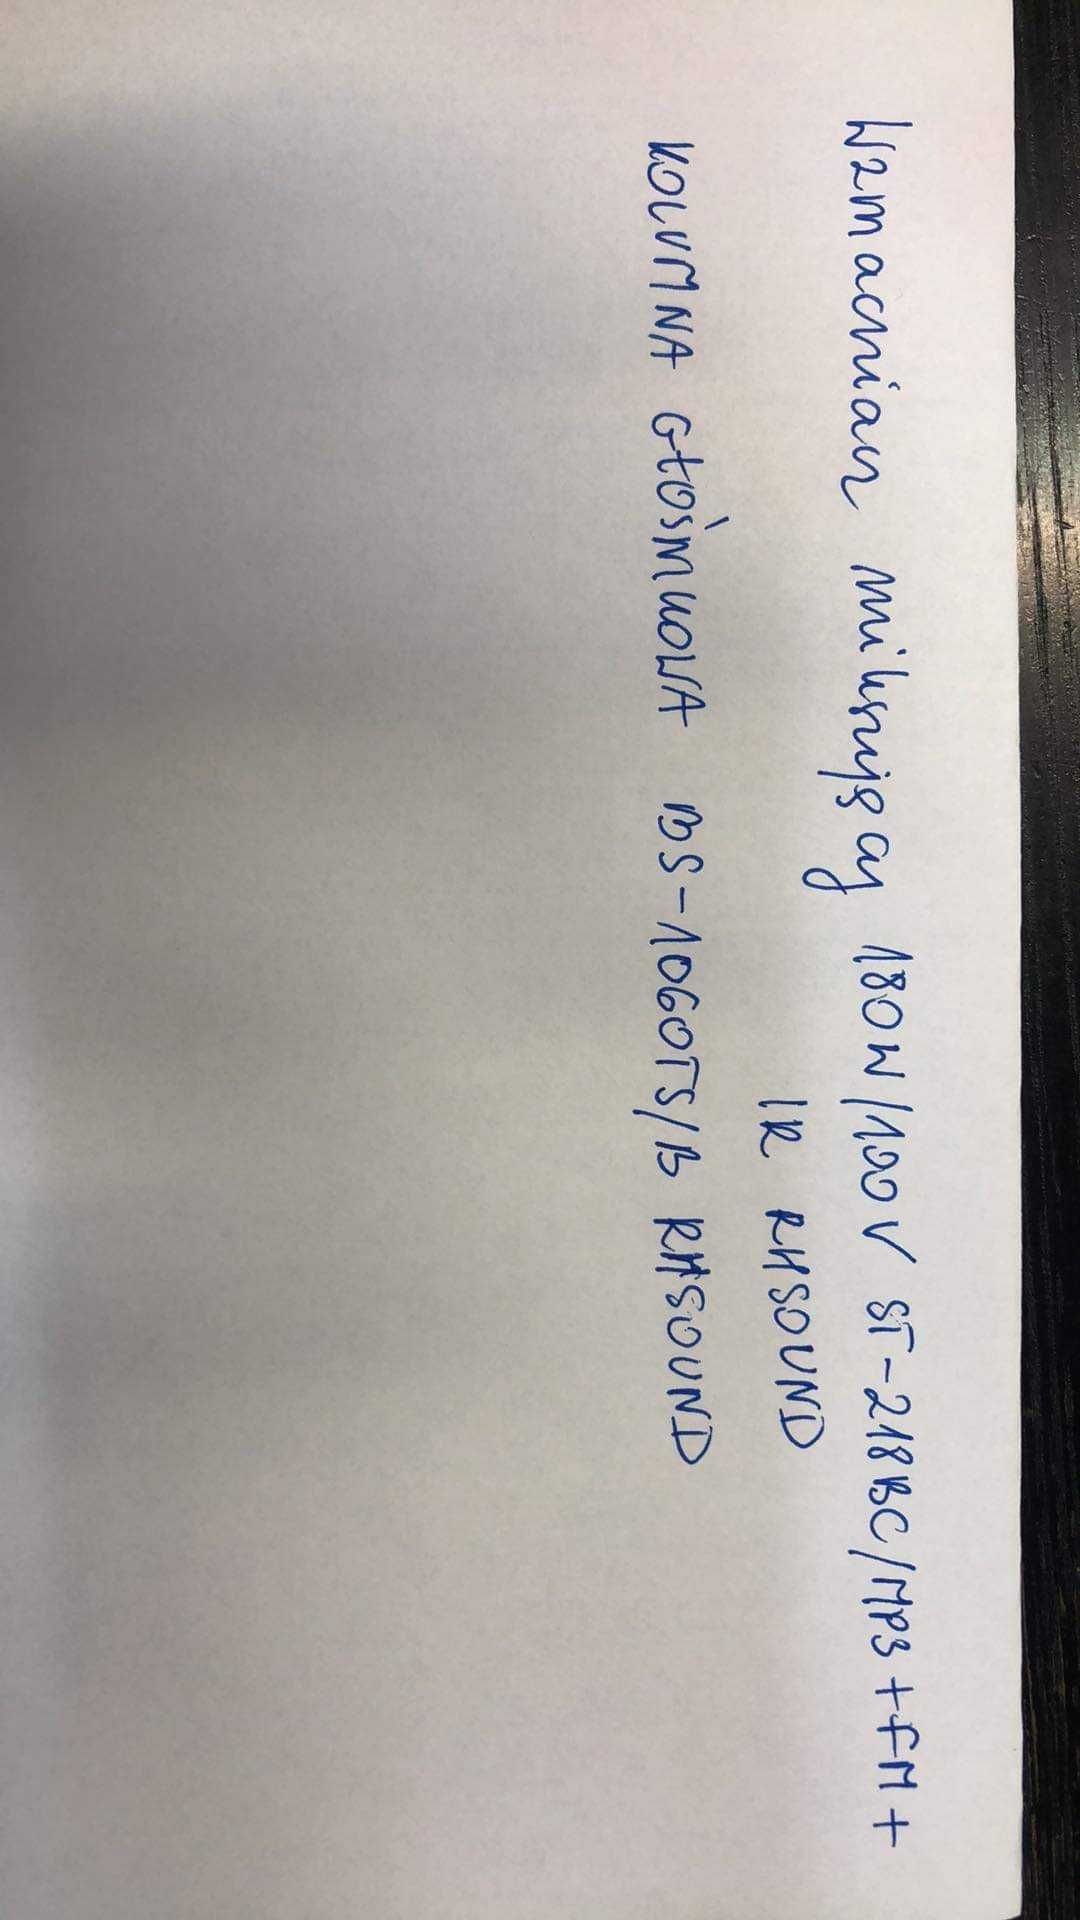 Wzmacniacz miksujący 180W/100V ST-218BC/MP3+FM+
IR RHSOUND
KOLUMNA GŁOŚNIKOWA BS-1060TS/B RHSOUND